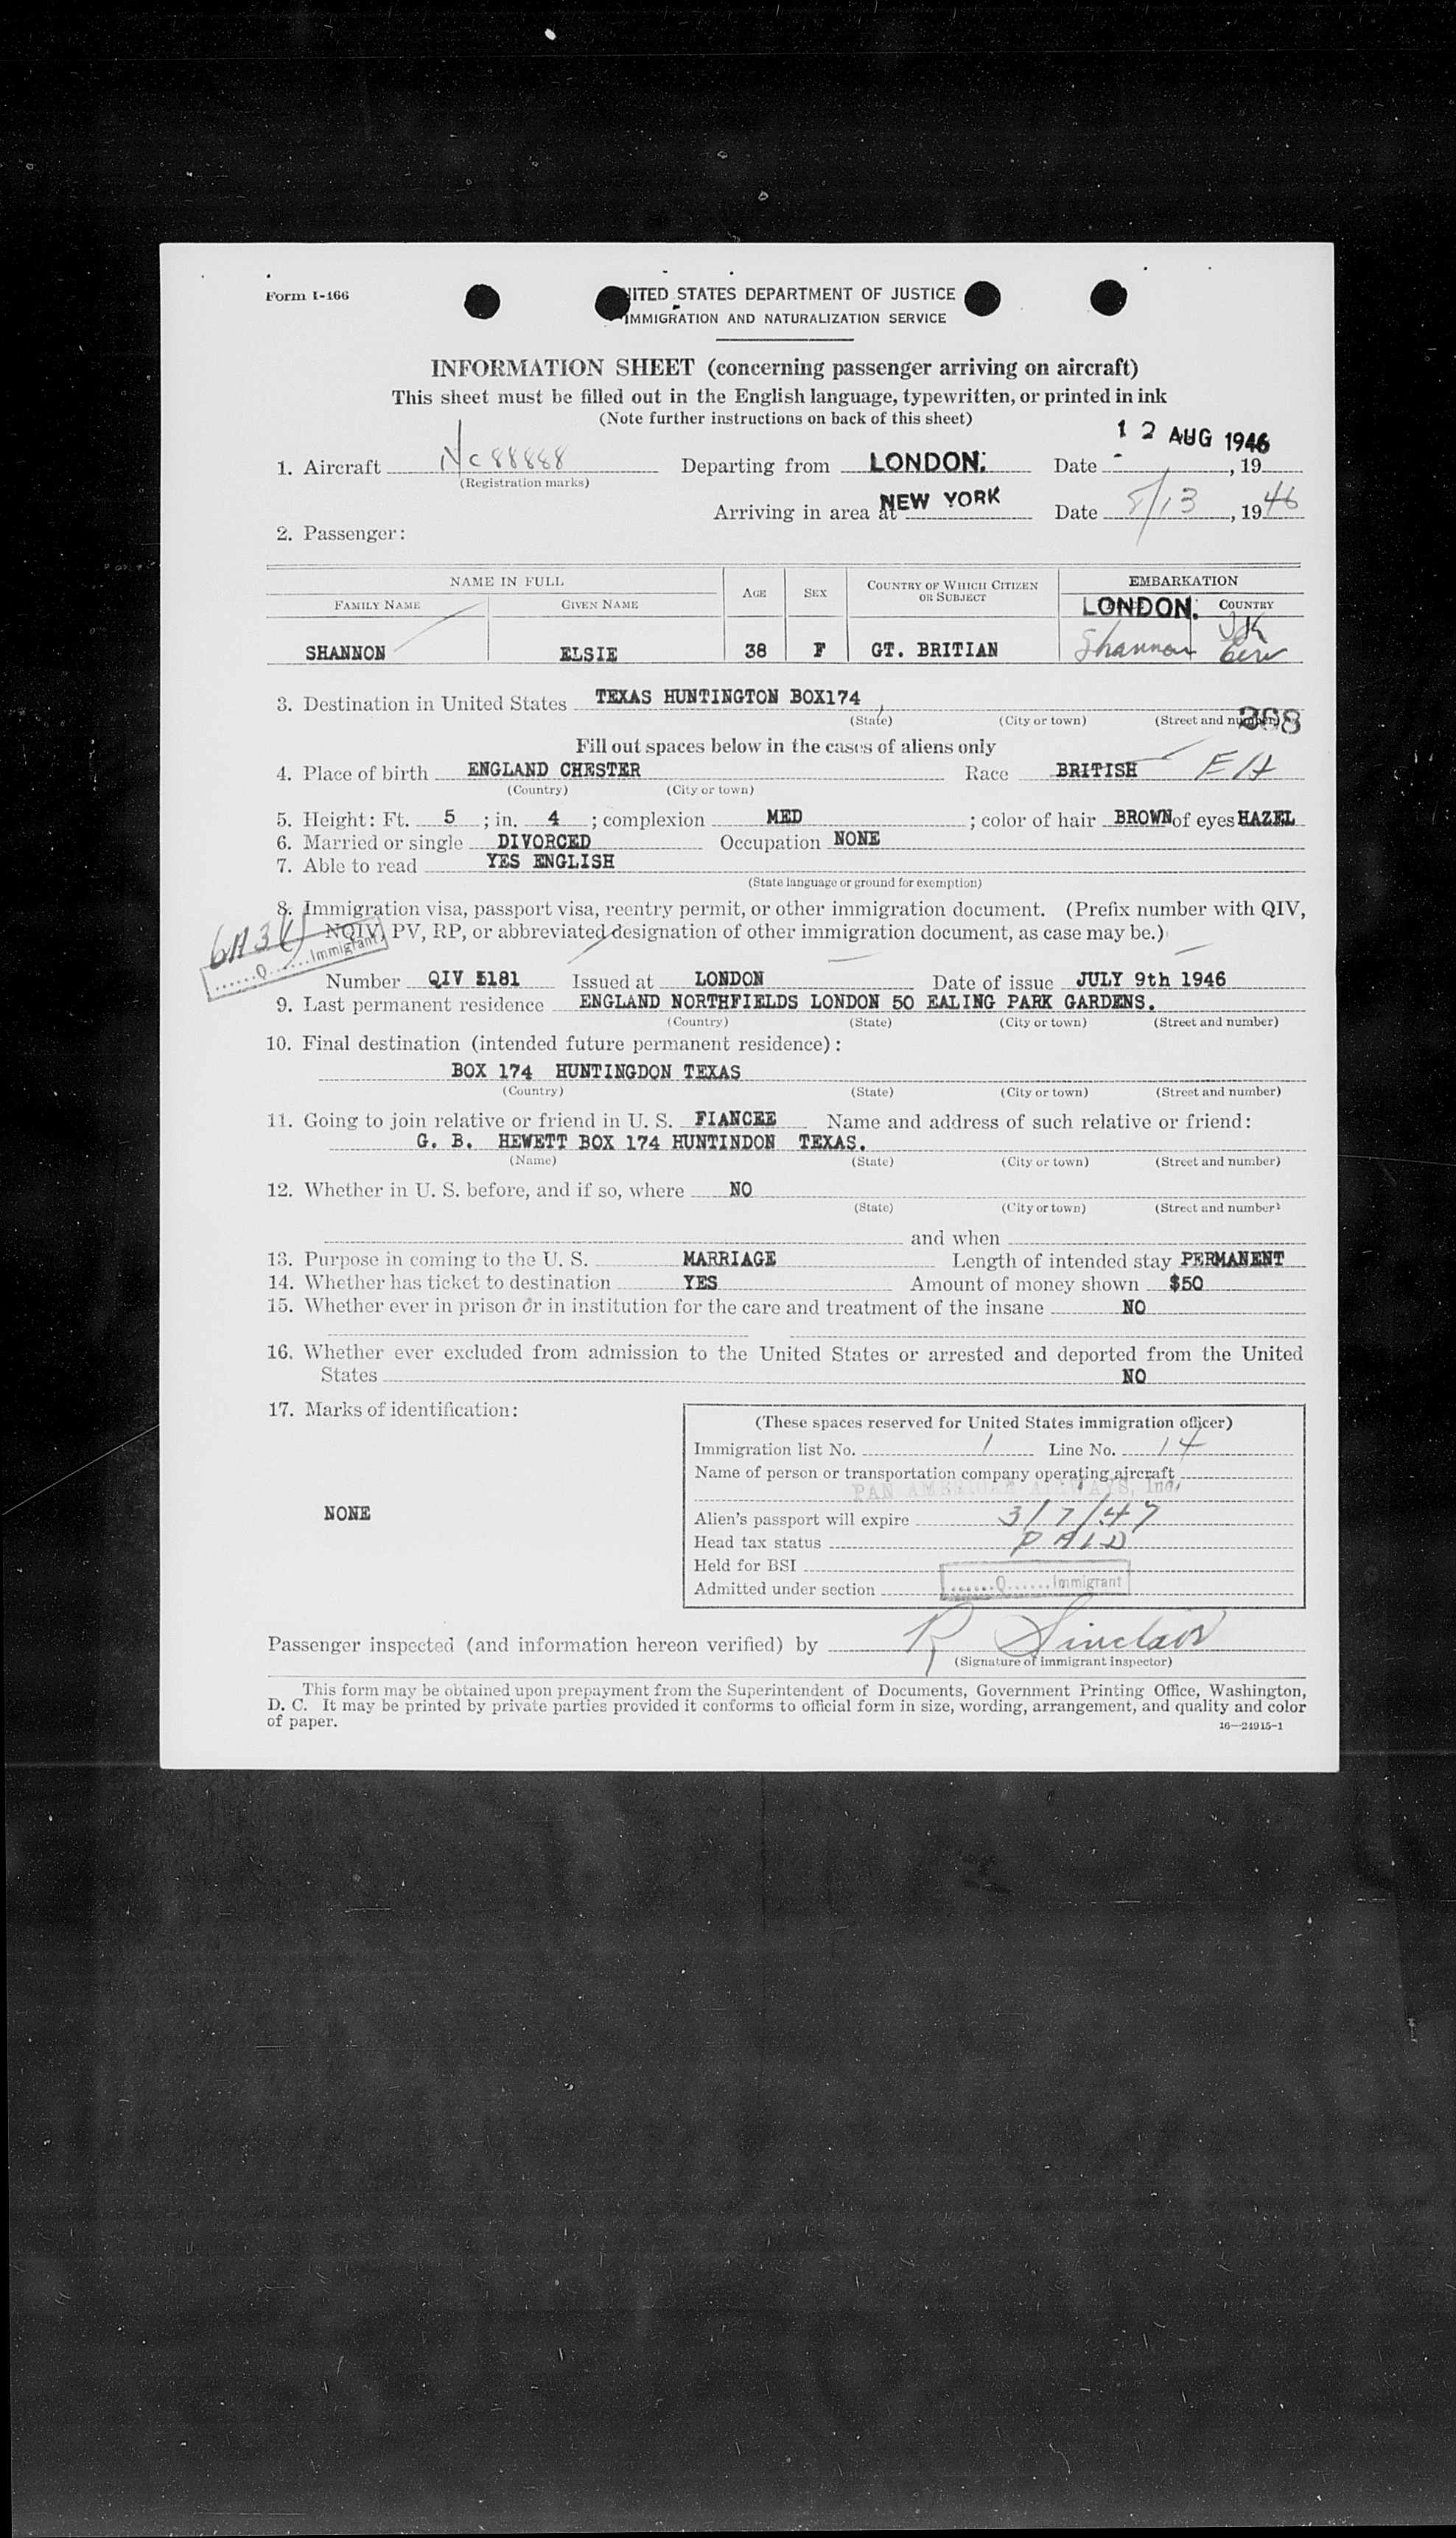 Form I-466
UNITED STATES DEPARTMENT OF JUSTICE
IMMIGRATION AND NATURALIZATION SERVICE
INFORMATION SHEET (concerning passenger arriving on aircraft)
This sheet must be filled out in the English language, typewritten, or printed in ink
(Note further instructions on back of this sheet)
1. Aircraft Nc 88888 Departing from LONDON. Date 12 AUG 1946, 19
(Registration marks)
Arriving in area at NEW YORK Date 8/13, 1946
2. Passenger:
NAME IN FULL AGE SEX COUNTRY OF WHICH CITIZEN OR SUBJECT EMBARKATION
FAMILY NAME GIVEN NAME LONDON. COUNTRY
SHANNON ELSIE 38 F GT. BRITIAN Shannon
3. Destination in United States TEXAS HUNTINGTON BOX174
(State) (City or town) (Street and number) 368
Fill out spaces below in the cases of aliens only
4. Place of birth ENGLAND CHESTER Race BRITISH
(Country) (City or town)
5. Height: Ft. 5 ; in. 4 ; complexion MED ; color of hair BROWN of eyes HAZEL
6. Married or single DIVORCED Occupation NONE
7. Able to read YES ENGLISH
(State language or ground for exemption)
8. Immigration visa, passport visa, reentry permit, or other immigration document. (Prefix number with QIV,
NQIV, PV, RP, or abbreviated designation of other immigration document, as case may be.)
......Q......Immigrant
Number QIV 5181 Issued at LONDON Date of issue JULY 9th 1946
9. Last permanent residence ENGLAND NORTHFIELDS LONDON 50 EALING PARK GARDENS.
(Country) (State) (City or town) (Street and number)
10. Final destination (intended future permanent residence):
BOX 174 HUNTINGDON TEXAS
(Country) (State) (City or town) (Street and number)
11. Going to join relative or friend in U. S. FIANCEE Name and address of such relative or friend:
G. B. HEWETT BOX 174 HUNTINDON TEXAS.
(Name) (State) (City or town) (Street and number)
12. Whether in U. S. before, and if so, where NO
(State) (City or town) (Street and number)
and when
13. Purpose in coming to the U. S. MARRIAGE Length of intended stay PERMANENT
14. Whether has ticket to destination YES Amount of money shown $50
15. Whether ever in prison or in institution for the care and treatment of the insane NO
16. Whether ever excluded from admission to the United States or arrested and deported from the United
States NO
17. Marks of identification:
NONE
(These spaces reserved for United States immigration officer)
Immigration list No. 1 Line No. 14
Name of person or transportation company operating aircraft
PAN AMERICAN AIRWAYS, Inc.
Alien's passport will expire 3/7/47
Head tax status PAID
Held for BSI
Admitted under section ......Q......Immigrant
Passenger inspected (and information hereon verified) by R Sinclair
(Signature of immigrant inspector)
This form may be obtained upon prepayment from the Superintendent of Documents, Government Printing Office, Washington,
D. C. It may be printed by private parties provided it conforms to official form in size, wording, arrangement, and quality and color
of paper.
16—24915-1